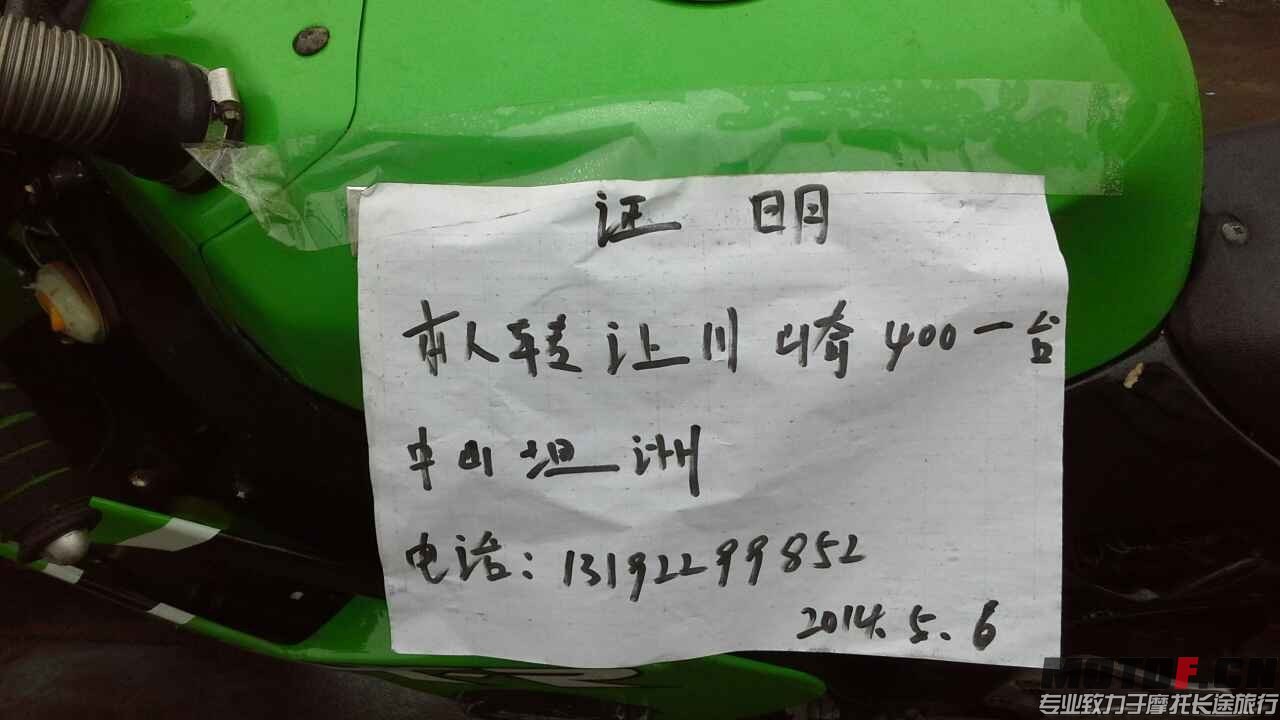 证明
本人转让川崎400一台
中山坦洲
电话:13192299852
2014.5.6
MOTOF.CN
专业致力于摩托长途旅行